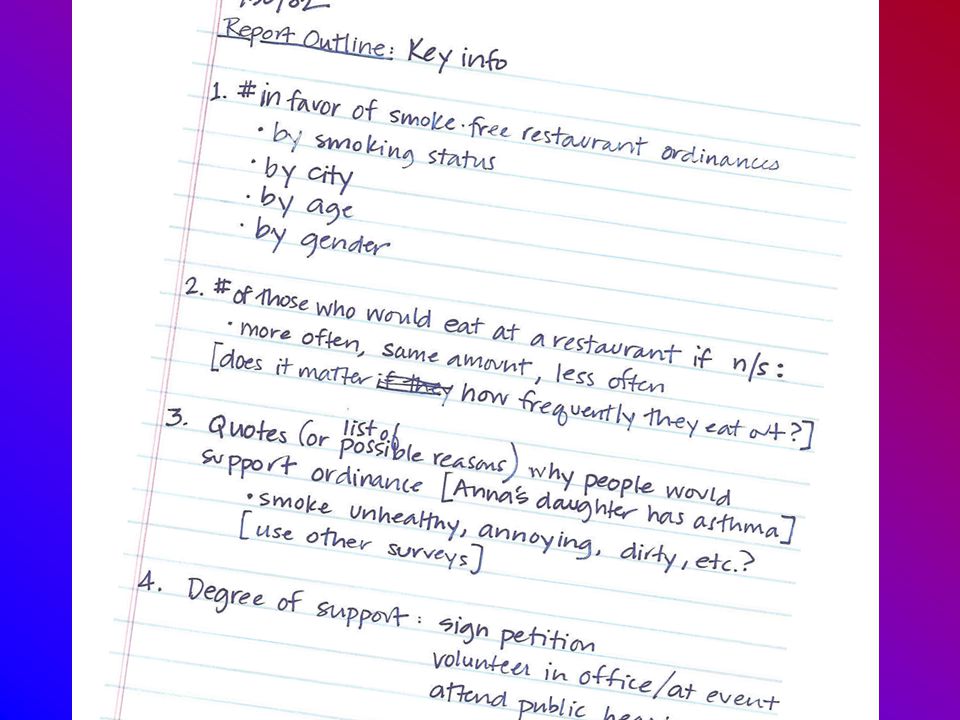 Report Outline: Key info
1. # in favor of smoke-free restaurant ordinances
• by smoking status
• by city
• by age
• by gender
2. # of those who would eat at a restaurant if n/s:
• more often, same amount, less often
[does it matter if they how frequently they eat out?]
3. Quotes (or list of possible reasons) why people would
support ordinance [Anna's daughter has asthma]
• smoke unhealthy, annoying, dirty, etc.?
[use other surveys]
4. Degree of support: sign petition
volunteer in office/at event
attend public